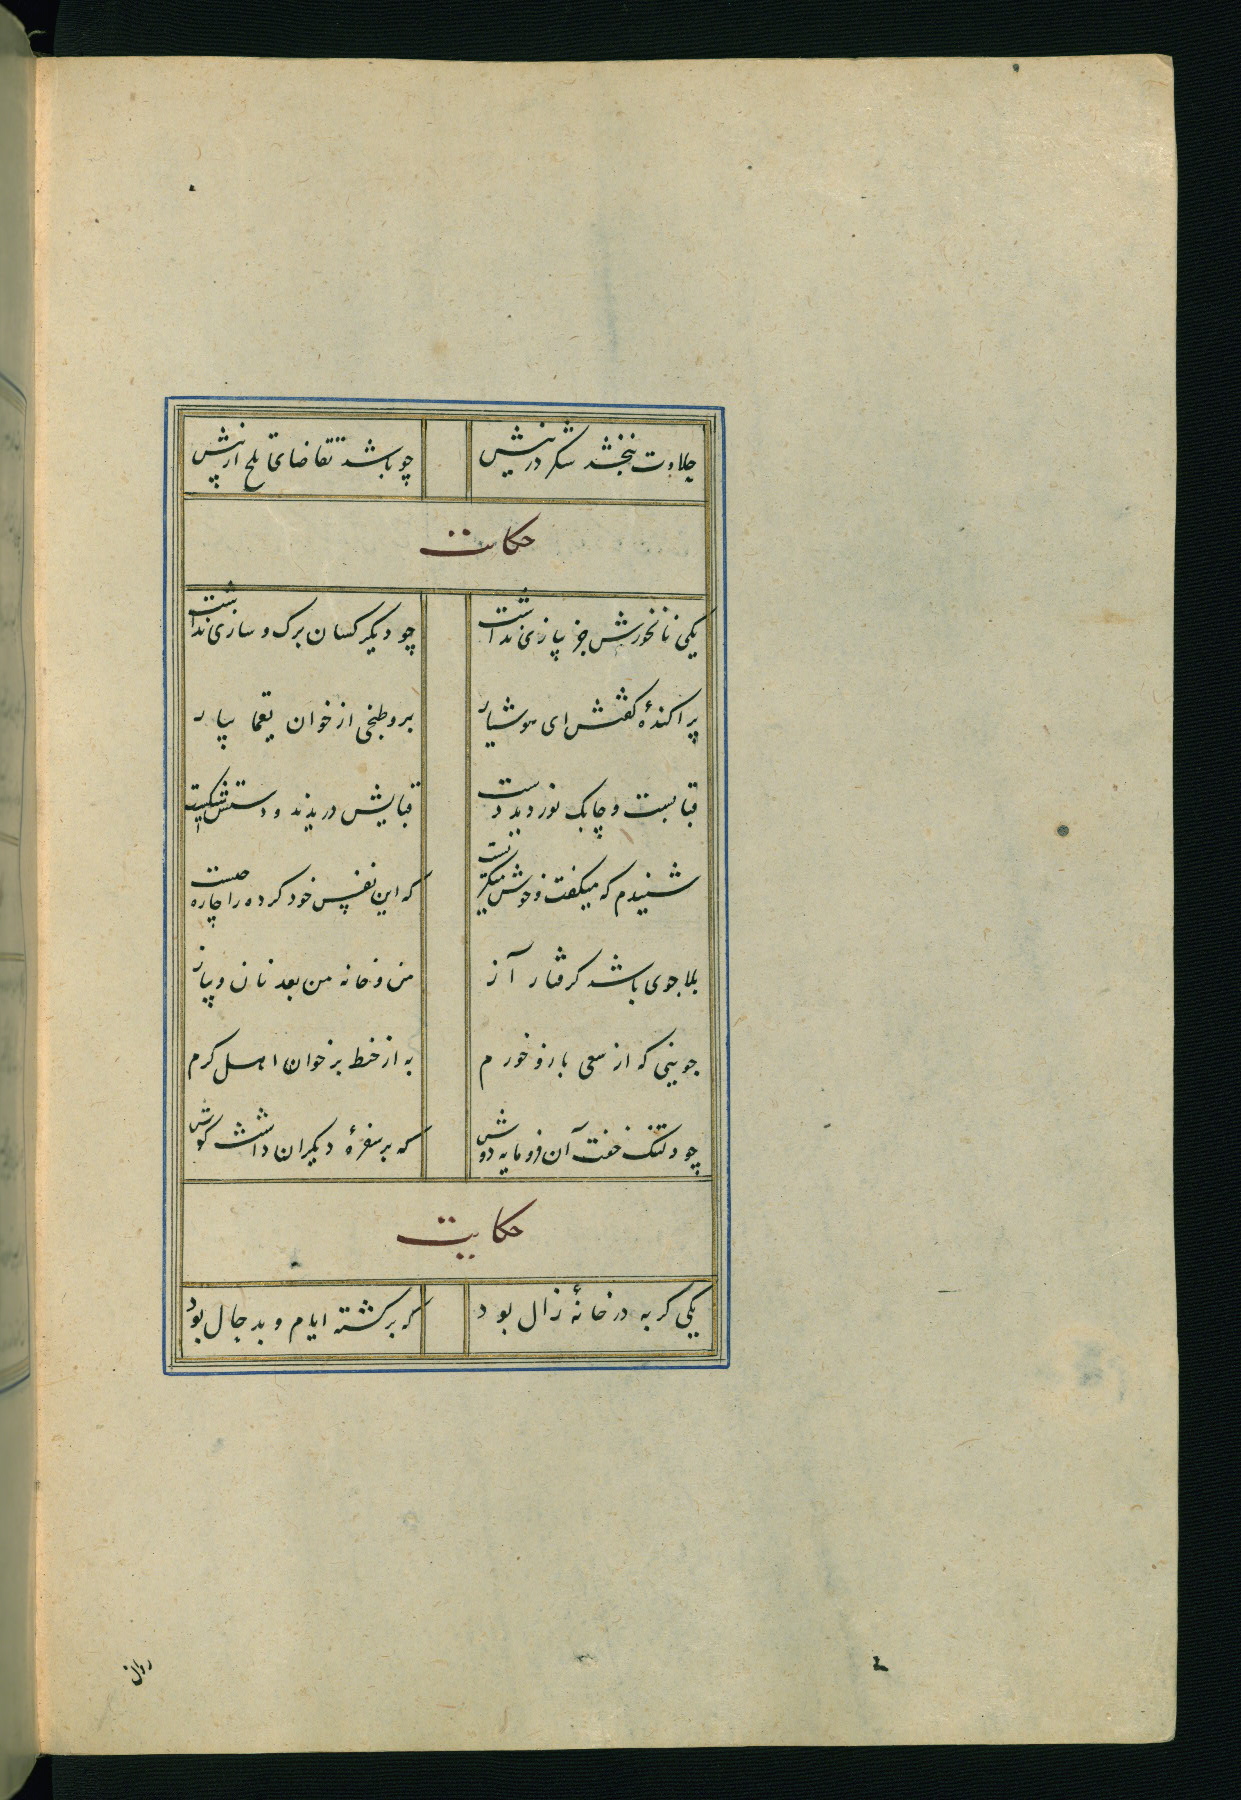 حلاوت نبخشد شکر در نیش چو باشد تقاضای تلخ از پیش
حکایت
یکی نانخورش جز پیازی نداشت چو دیگر کسان برک و سازی نداشت
پراکندهٔ کفتش ای هوشیار برو طبخی از خوان یغما بیار
قبا بست و چابک نوردید دست قبایش دریدند و دستش شکست
شنیدم که میکفت و خوش میکریست که این نفس خود کرده را چاره چیست
بلا جوی باشد کرفتار آز من و خانه من بعد نان و پیاز
جوینی که از سعی بازو خورم به از خبط بر خوان اهل کرم
چو دلتنک خفت آن فرومایه دوش که بر سفرهٔ دیکران داشت کوش
حکایت
یکی کربه در خانهٔ زال بود که برکشته ایام و بد حال بود
روان